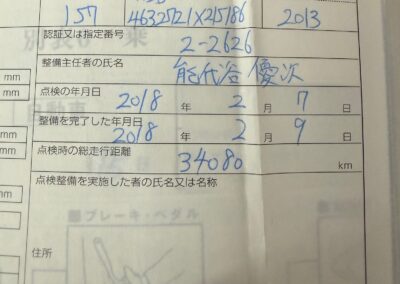 157 4632721X215186 2013
認証又は指定番号
2-2626
整備主任者の氏名
能代谷 優次
点検の年月日
2018 年 2 月 7 日
整備を完了した年月日
2018 年 2 月 9 日
点検時の総走行距離
34080 km
点検整備を実施した者の氏名又は名称
住所
mm
mm
mm
mm
ブレーキ・ペダル